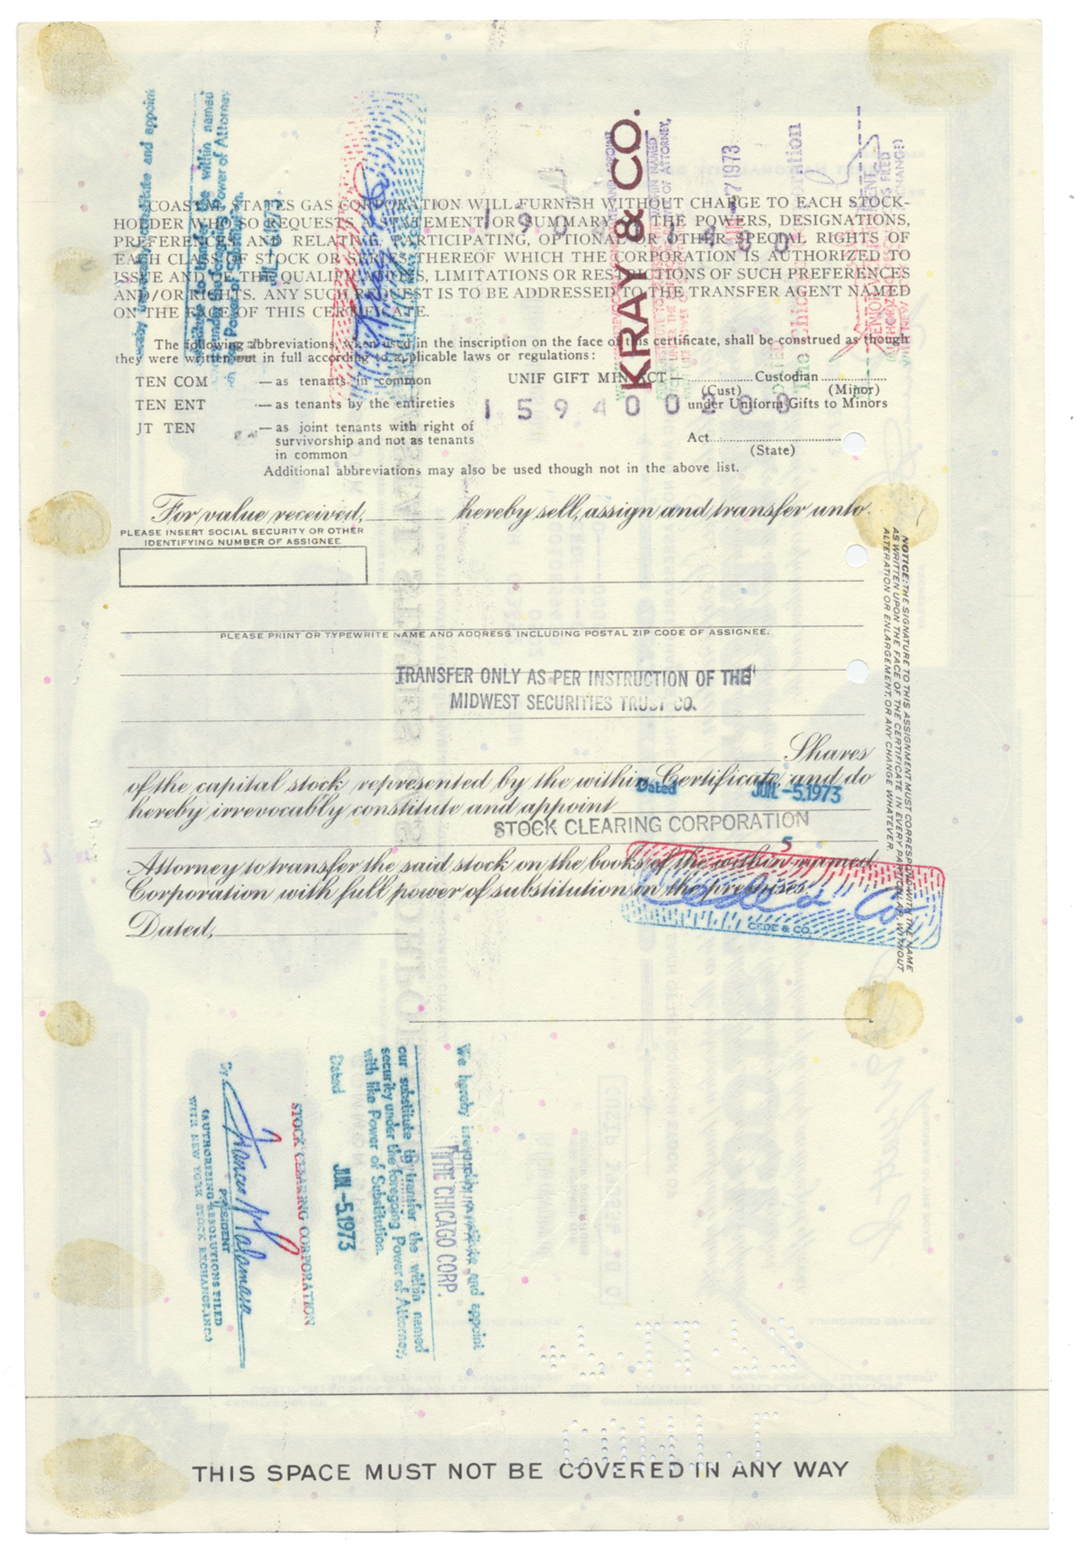 COASTAL STATES GAS CORPORATION WILL FURNISH WITHOUT CHARGE TO EACH STOCK-
HOLDER WHO SO REQUESTS A STATEMENT OR SUMMARY OF THE POWERS, DESIGNATIONS,
PREFERENCES AND RELATIVE, PARTICIPATING, OPTIONAL OR OTHER SPECIAL RIGHTS OF
EACH CLASS OF STOCK OR SERIES THEREOF WHICH THE CORPORATION IS AUTHORIZED TO
ISSUE AND OF THE QUALIFICATIONS, LIMITATIONS OR RESTRICTIONS OF SUCH PREFERENCES
AND/OR RIGHTS. ANY SUCH REQUEST IS TO BE ADDRESSED TO THE TRANSFER AGENT NAMED
ON THE FACE OF THIS CERTIFICATE.
KRAY & CO.
The following abbreviations, when used in the inscription on the face of this certificate, shall be construed as though
they were written out in full according to applicable laws or regulations:
TEN COM — as tenants in common UNIF GIFT MIN ACT — ............ Custodian ............
(Cust) (Minor)
TEN ENT — as tenants by the entireties under Uniform Gifts to Minors
159400200
JT TEN — as joint tenants with right of
survivorship and not as tenants
in common
Act............
(State)
Additional abbreviations may also be used though not in the above list.
For value received, ______ hereby sell, assign and transfer unto
PLEASE INSERT SOCIAL SECURITY OR OTHER
IDENTIFYING NUMBER OF ASSIGNEE
PLEASE PRINT OR TYPEWRITE NAME AND ADDRESS INCLUDING POSTAL ZIP CODE OF ASSIGNEE.
TRANSFER ONLY AS PER INSTRUCTION OF THE
MIDWEST SECURITIES TRUST CO.
Shares
of the capital stock represented by the within Certificate, and do
Dated JUN -5.1973
hereby irrevocably constitute and appoint
STOCK CLEARING CORPORATION
Attorney to transfer the said stock on the books of the within named
Corporation with full power of substitution in the premises.
Cede & Co
CEDE & CO.
Dated,
NOTICE: THE SIGNATURE TO THIS ASSIGNMENT MUST CORRESPOND WITH THE NAME
AS WRITTEN UPON THE FACE OF THE CERTIFICATE IN EVERY PARTICULAR, WITHOUT
ALTERATION OR ENLARGEMENT, OR ANY CHANGE WHATEVER.
We hereby irrevocably constitute and appoint
THE CHICAGO CORP.
our substitute to transfer the within named
security under the foregoing Power of Attorney,
with like Power of Substitution.
Dated JUN -5.1973
STOCK CLEARING CORPORATION
By
PRESIDENT
(AUTHORIZING RESOLUTIONS FILED
WITH NEW YORK STOCK EXCHANGE)
THIS SPACE MUST NOT BE COVERED IN ANY WAY